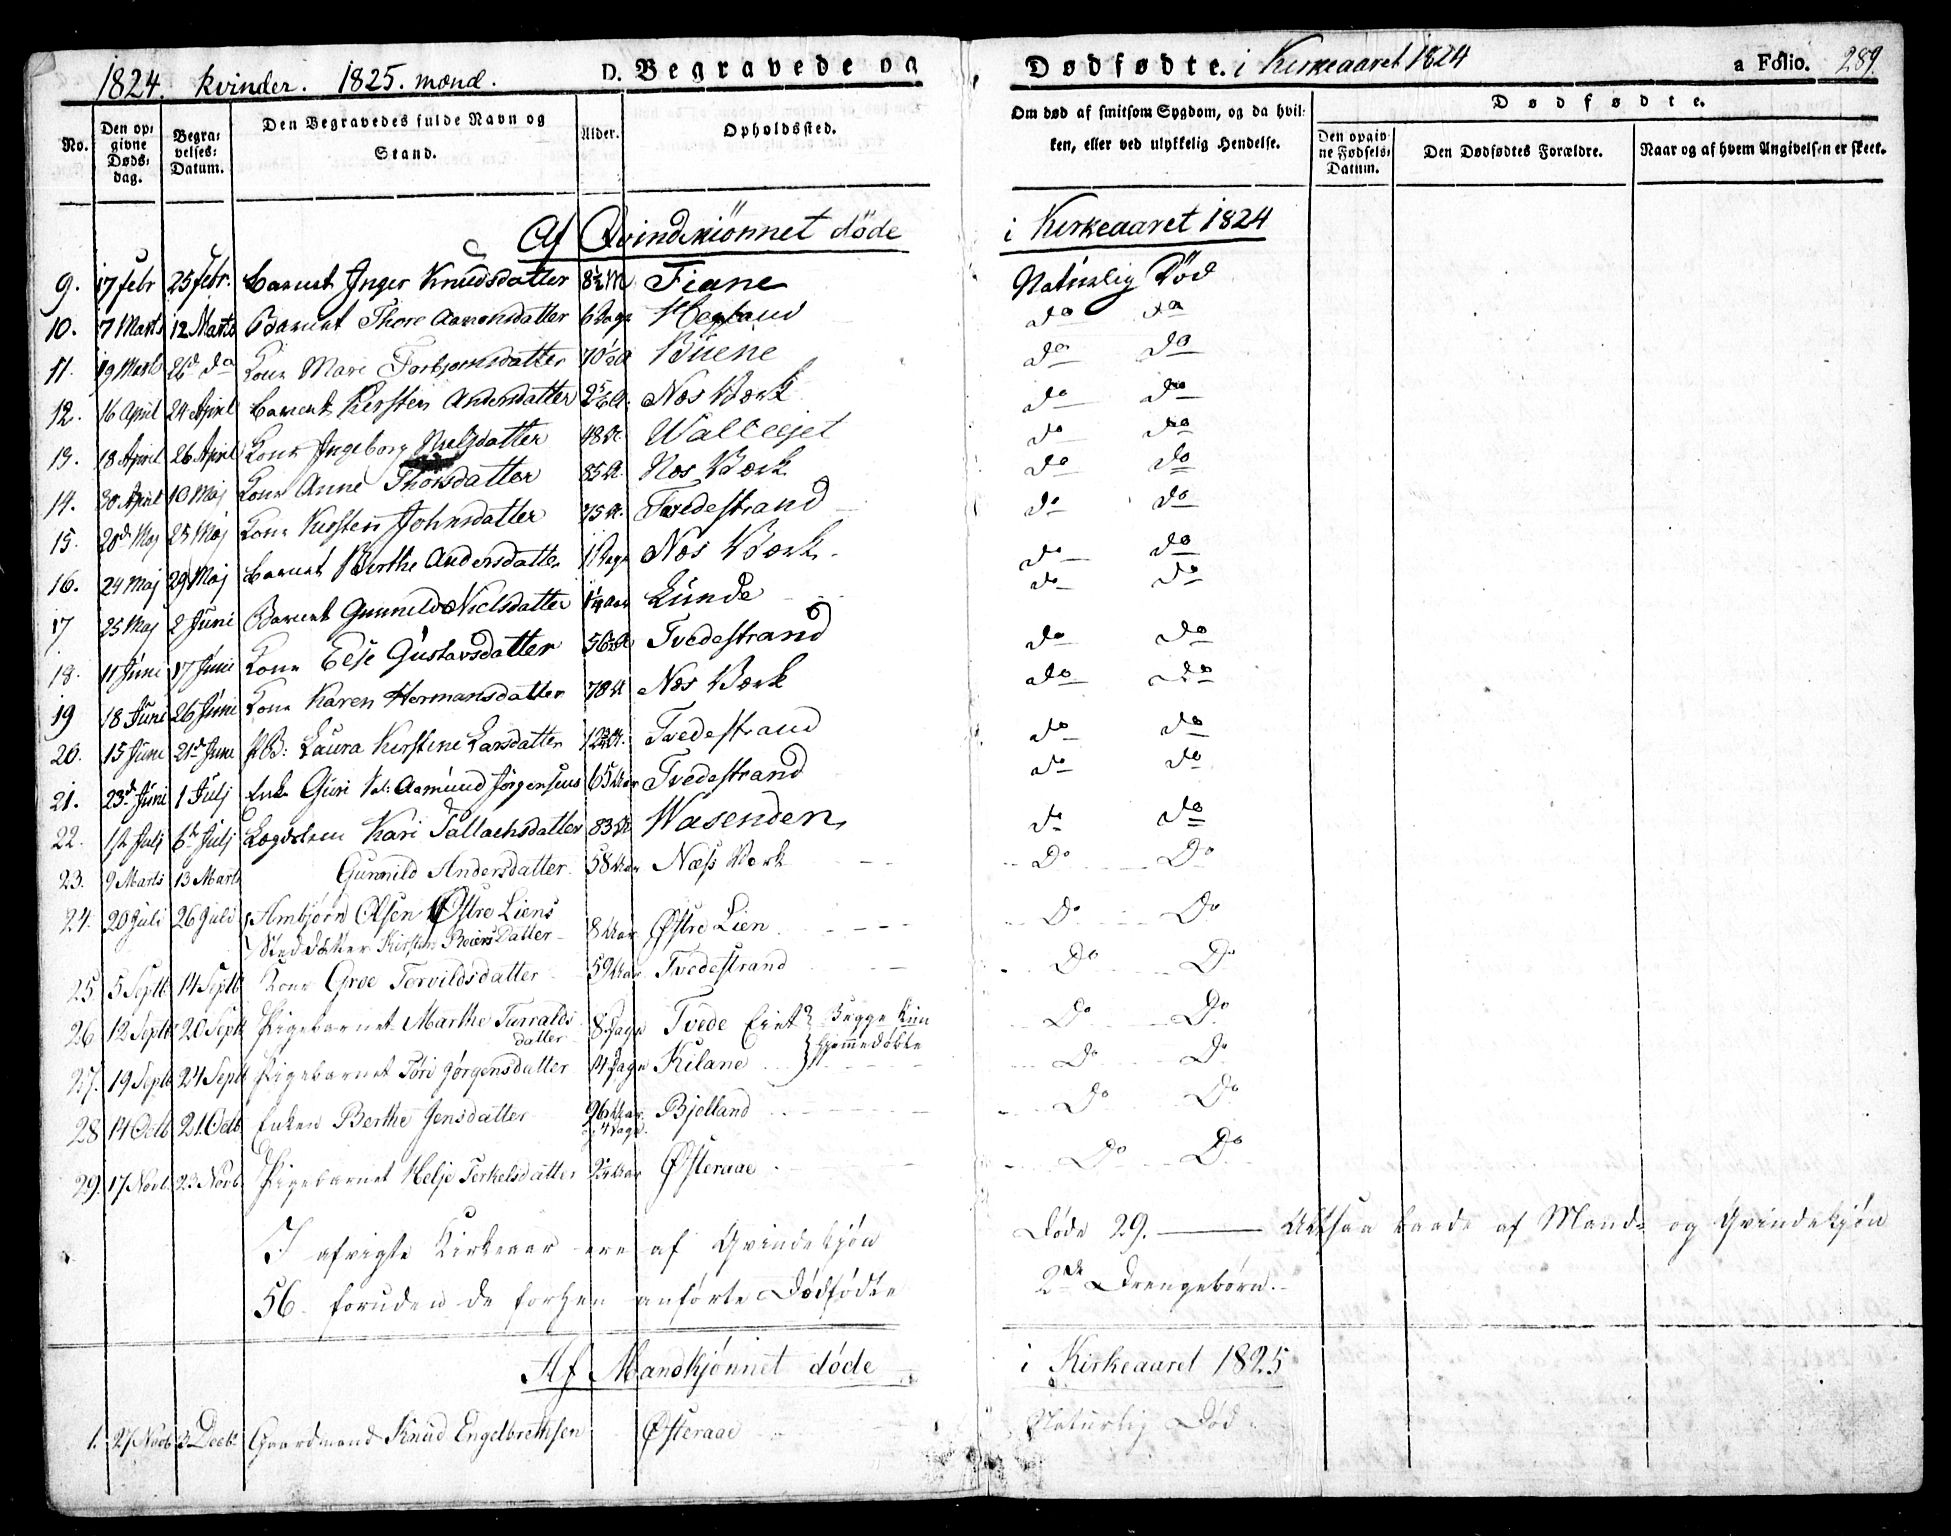 1824. kvinder. 1825. mænd. D. Begravede og Dødfødte. i Kirkeaaret 1824 a Folio. 289.
No. Den opgivne Døds-dag. Begravelses-Datum. Den Begravedes fulde Navn og Stand. Alder. Opholdssted. Om død af smitsom Sygdom, og da hvilken, eller ved ulykkelig Hendelse. Dødfødte. Den opgivne Fødsels-Datum. Den Dødfødtes Forældre. Naar og af hvem Angivelsen er skeet.
Af Qvindkiönnet döde i Kirkeaaret 1824
9. 17 febr 25 febr. Barnet Inger Knudsdatter 8½ M Fiane Naturlig Död
10. 7 Marts 12 Marts Barnet Thore Aaronsdatter 6 Dage Hegland do do
11. 19 Marts 26d do Kone Mari Torbjörnsdatter 70½ A Büene do do
12. 16 April 24 April Barnet Kirsten Andersdatter Næs Værk do do
13. 18 April 26 April Kone Ingeborg Nielsdatter 48 A. do do
14. 30 April 10 Maj Kone Anne Thorsdatter 85 A. Næs Værk do do
15. 20d Maj 25 Maj Kone Kirsten Johnsdatter 75 A. Tvedestrand do do
16. 24 Maj 29 Maj Barnet Berthe Andersdatter 11 Dage Næs Værk do do
17 25 Maj 2 Juni Barnet Gunnild Nielsdatter Lunde do do
18. 11 Juni 17 Juni Kone Else Gustavsdatter Tvedestrand do do
19 18 Juni 26 Juni Kone Karen Hermansdatter 78 A Næs Værk do do
20. 15 Juni 21d Juni PB: Laura Kirstine Larsdatter Tvedestrand do do
21. 23d Juni 1 Julj Enke Guri Aamund Jörgensens 65 Aar Tvedestrand do do
22. 1st Julj 6te Julj Lægdslem Kari Tallachsdatter 83 A Wasenden do do
23. 9 Marts 13 Marts Gunnild Andersdatter 58 Aar Næss Værk Do Do
24. 20 Juli 26 Juli Ambjørn Olsen Østre Liens
Steddatter Kirsten Reiers Datter 8 Aar Østre Lien Do Do
25. 5 Septb 14 Septb Kone Groe Torvildsdatter 59 Aar Tvedestrand Do Do
26 12 Septb 20 Septb Pigebarnet Marthe Turvalds 8 Dage Tvede Eiet } Begge kun Do Do
datter
27. 19 Septb 24 Septb Pigebarnet Töri Jørgensdatter 14 Dage Kilane } hjemmedøbte Do Do
28 14 Octb 21 Octb Enken Berthe Jensdatter 96 Aar Bjelland Do Do
29. 17 Novb. 23 Novb. Pigebarnet Helje Terkelsdatter Østeraae Do Do
I afvigte Kirkeaar ere af Qvindekjøn Døde 29. Altsaa baade af Mand- og Qvindekjøn
56 foruden de forhen anførte Dødfødte 2de Drengebørn.
Af Mandkjønnet døde i Kirkeaaret 1825
1. 27 Novb 3 Decb Gaardmand Knud Engelbrethsen Østeraae Naturlig Død